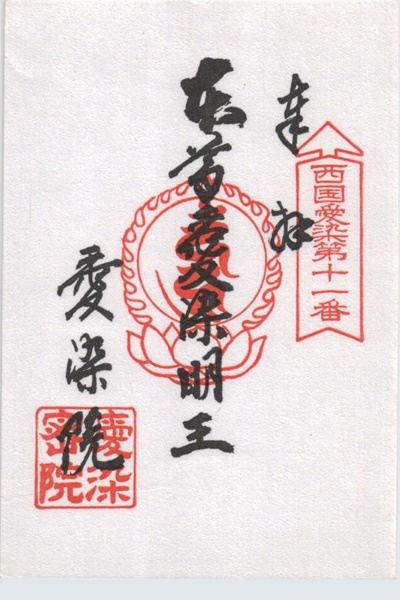 西国愛染第十一番
奉拝
本尊愛染明王
愛染院
愛染
院